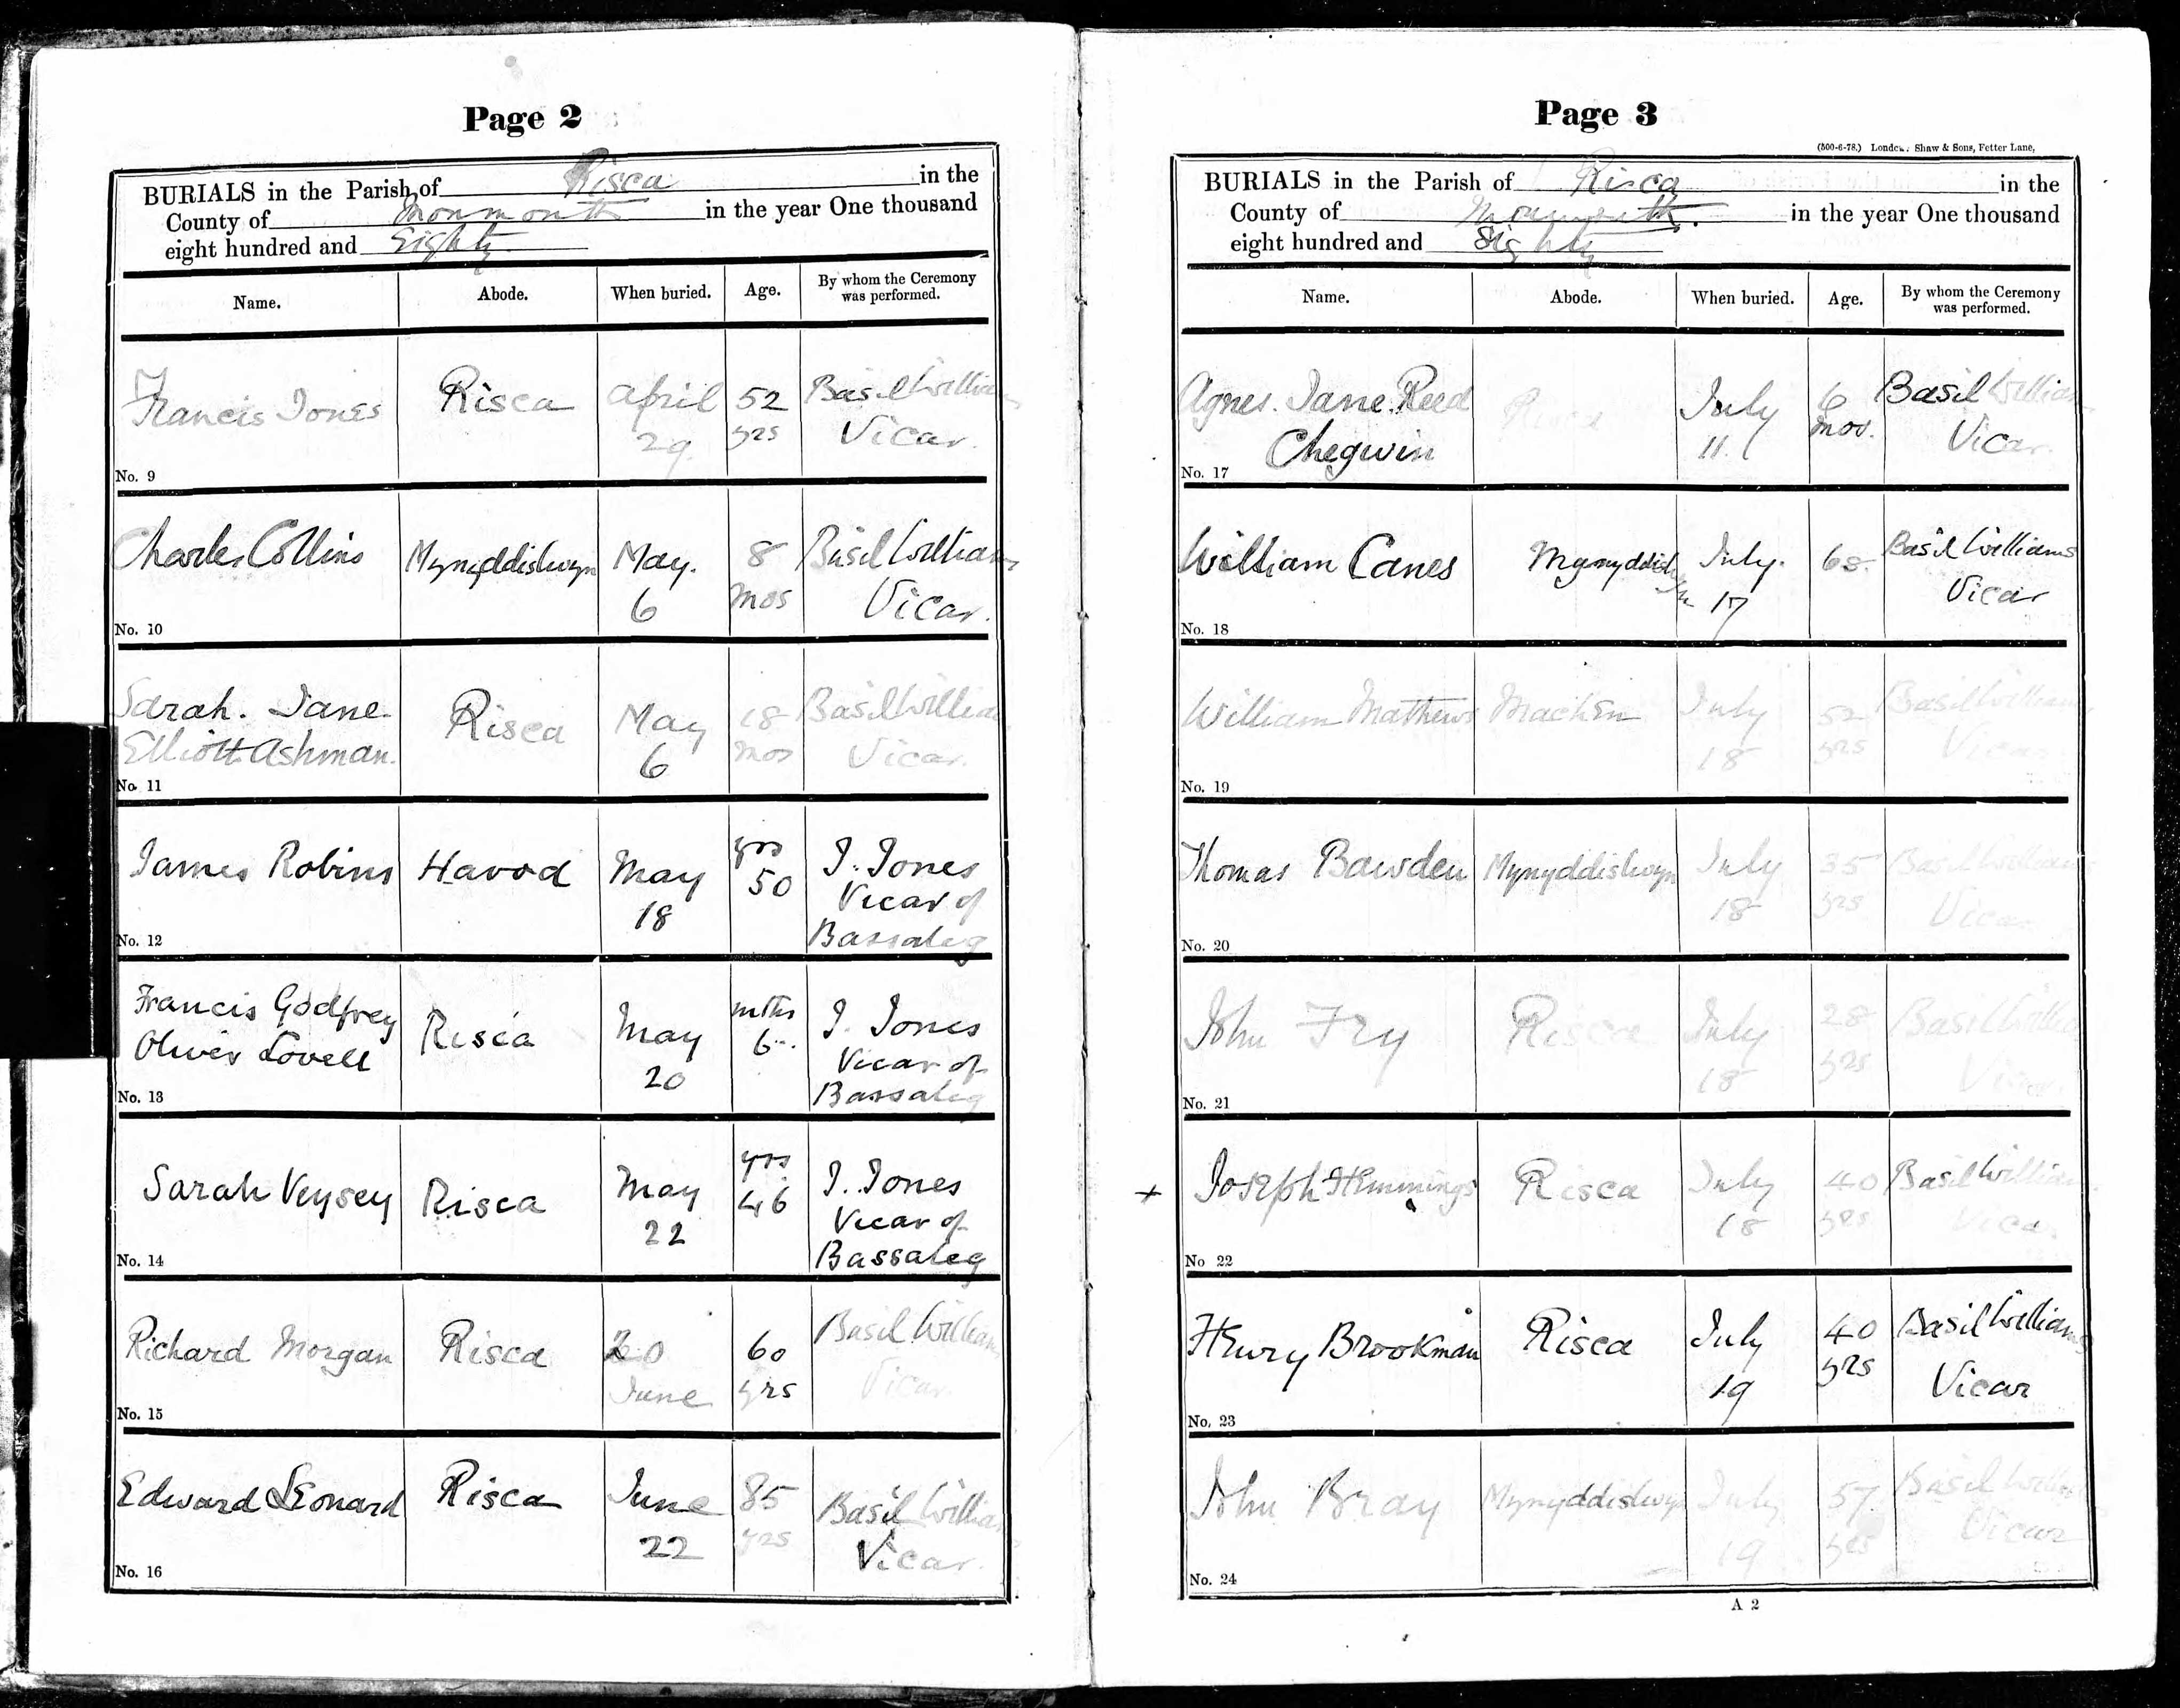 Page 2
BURIALS in the Parish of Risca in the
County of Monmouth in the year One thousand
eight hundred and Eighty
Name. Abode. When buried. Age. By whom the Ceremony
was performed.
Francis Jones Risca April 52 Basil William
29 yrs Vicar.
No. 9
Charles Collins Mynyddislwyn May. 8 Basil Williams
6 mos Vicar.
No. 10
Sarah. Jane Risca May 18 Basil William
Elliott Ashman. 6 mos Vicar.
No. 11
James Robins Havod May yrs 50 J. Jones
18 Vicar of
Bassaleg
No. 12
Francis Godfrey Risca May mths 6 J. Jones
Oliver Lovell 20 Vicar of
Bassaleg
No. 13
Sarah Veysey Risca May yrs 46 J. Jones
22 Vicar of
Bassaleg
No. 14
Richard Morgan Risca 20 60 Basil William
June yrs Vicar
No. 15
Edward Leonard Risca June 85 Basil William
22 yrs Vicar.
No. 16
Page 3
(500-6-78.) London: Shaw & Sons, Fetter Lane,
BURIALS in the Parish of Risca in the
County of Monmouth. in the year One thousand
eight hundred and Eighty
Name. Abode. When buried. Age. By whom the Ceremony
was performed.
Agnes. Jane. Reed Risca July 6 Basil William
Chegwin 11. mos. Vicar.
No. 17
William Canes Mynyddislwyn July. 68. Basil Williams
17 Vicar
No. 18
William Mathews Machen July 52 Basil William
18 yrs Vicar
No. 19
Thomas Bawden Mynyddislwyn July 35 Basil Williams
18 yrs Vicar
No. 20
John Fry Risca July 28 Basil William
18 yrs Vicar
No. 21
+ Joseph Hemmings Risca July 40 Basil William
18 yrs Vicar
No 22
Henry Brookman Risca July 40 Basil Williams
19 yrs Vicar
No. 23
John Bray Mynyddislwyn July 57 Basil Williams
19 yrs Vicar
No. 24
A 2